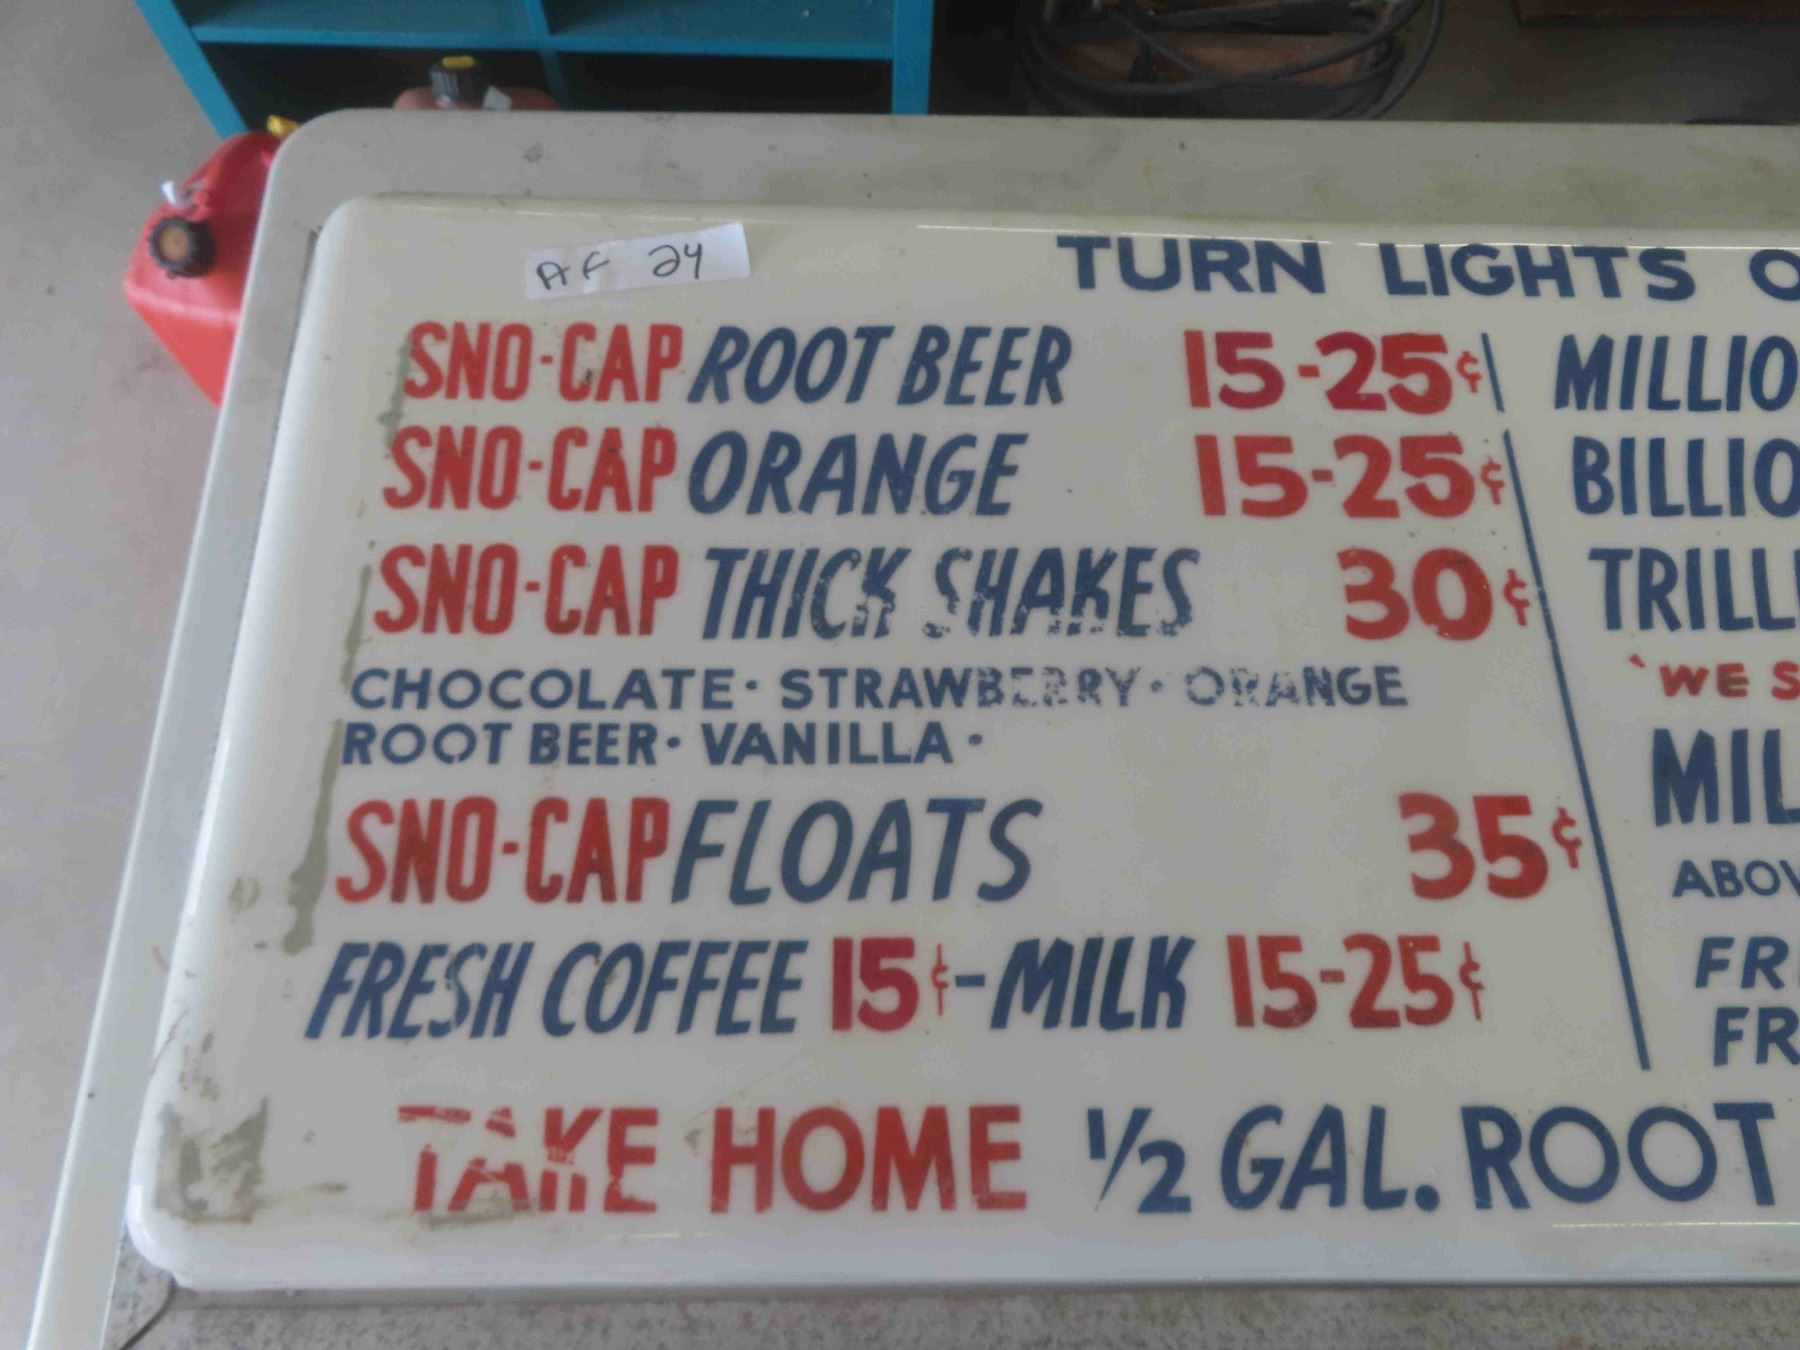 AF 24
TURN LIGHTS
SNO-CAP ROOT BEER 15-25¢
SNO-CAP ORANGE 15-25¢
SNO-CAP THICK SHAKES 30¢
CHOCOLATE · STRAWBERRY · ORANGE
ROOT BEER · VANILLA ·
SNO-CAP FLOATS 35¢
FRESH COFFEE 15¢-MILK 15-25¢
TAKE HOME 1/2 GAL. ROOT
MILLIO
BILLIO
TRILL
"WE S
MIL
ABOV
FR
FR